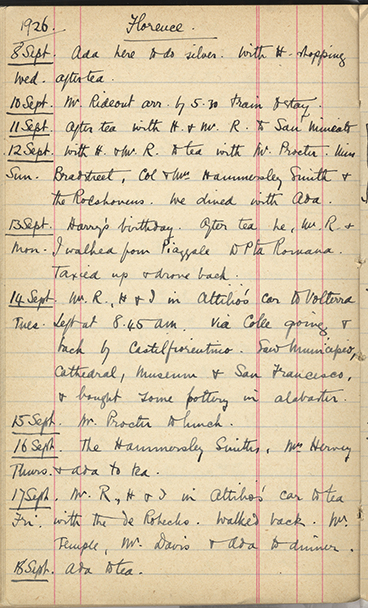 1926. Florence.
8 Sept. Ada here to do silver. With H. shopping
Wed. after tea.
10 Sept. Mr. Rideout arr. by 5.30 train to stay.
11 Sept. After tea with H. & Mr. R. to San Miniato
12 Sept. With H. & Mr. R. to tea with Mr. Procter. Miss
Sun. Bradstreet, Col & Mrs Hammersley Smith &
the . We dined with Ada.
13 Sept. Harry's birthday. After tea he, Mr. R. &
Mon. I walked from Piazzale to Pta Romana.
Taxied up & drove back.
14 Sept. Mr. R., H & I in Attilio's car to Volterra
Tues. Left at 8.45 am. via Colle going &
back by Castelfiorentino. Saw Municipio,
Cathedral, Museum & San Francisco,
& bought some pottery in alabaster.
15 Sept. Mr. Procter to lunch.
16 Sept. The Hammersley Smiths, Mrs Hervey
Thurs. & Ada to tea.
17 Sept. Mr. R., H & I in Attilio's car to tea
Fri. with the de . Walked back. Mr.
Temple, Mr. Davis & Ada to dinner.
18 Sept. Ada to tea.